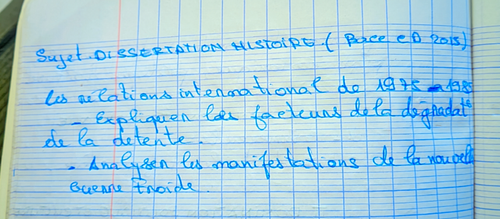 Sujet. DISSERTATION HISTOIRE. ( Bacc e D 2015)
les relations international de 1975 à 1985
- Expliquer les facteurs de la dégradat°
de la detente.
- Analyser les manifestations de la nouvelle
Guerre Froide.